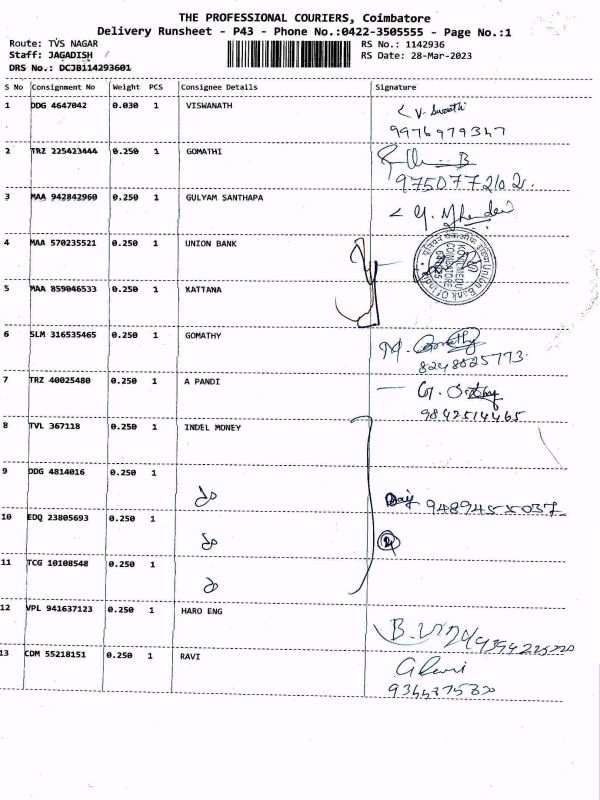 THE PROFESSIONAL COURIERS, Coimbatore
Delivery Runsheet - P43 - Phone No.:0422-3505555 - Page No.:1
Route: TVS NAGAR RS No.: 1142936
Staff: JAGADISH RS Date: 28-Mar-2023
DRS No.: DCJB114293601
S No Consignment No Weight PCS Consignee Details Signature
1 DDG 4647042 0.030 1 VISWANATH
9976979347
2 TRZ 225423444 0.250 1 GOMATHI
9750772102.
3 MAA 942842960 0.250 1 GULYAM SANTHAPA
4 MAA 570235521 0.250 1 UNION BANK
Union Bank Of India
5 MAA 859046533 0.250 1 KATTANA
6 SLM 316535465 0.250 1 GOMATHY
M. Gomathy
8248825773
7 TRZ 40025480 0.250 1 A PANDI
9842514465
8 TVL 367118 0.250 1 INDEL MONEY
9 DDG 4814016 0.250 1
do 9489455037
10 EDQ 23805693 0.250 1
do 2
11 TCG 10108548 0.250 1
do
12 VPL 941637123 0.250 1 HARO ENG
13 CDM 55218151 0.250 1 RAVI